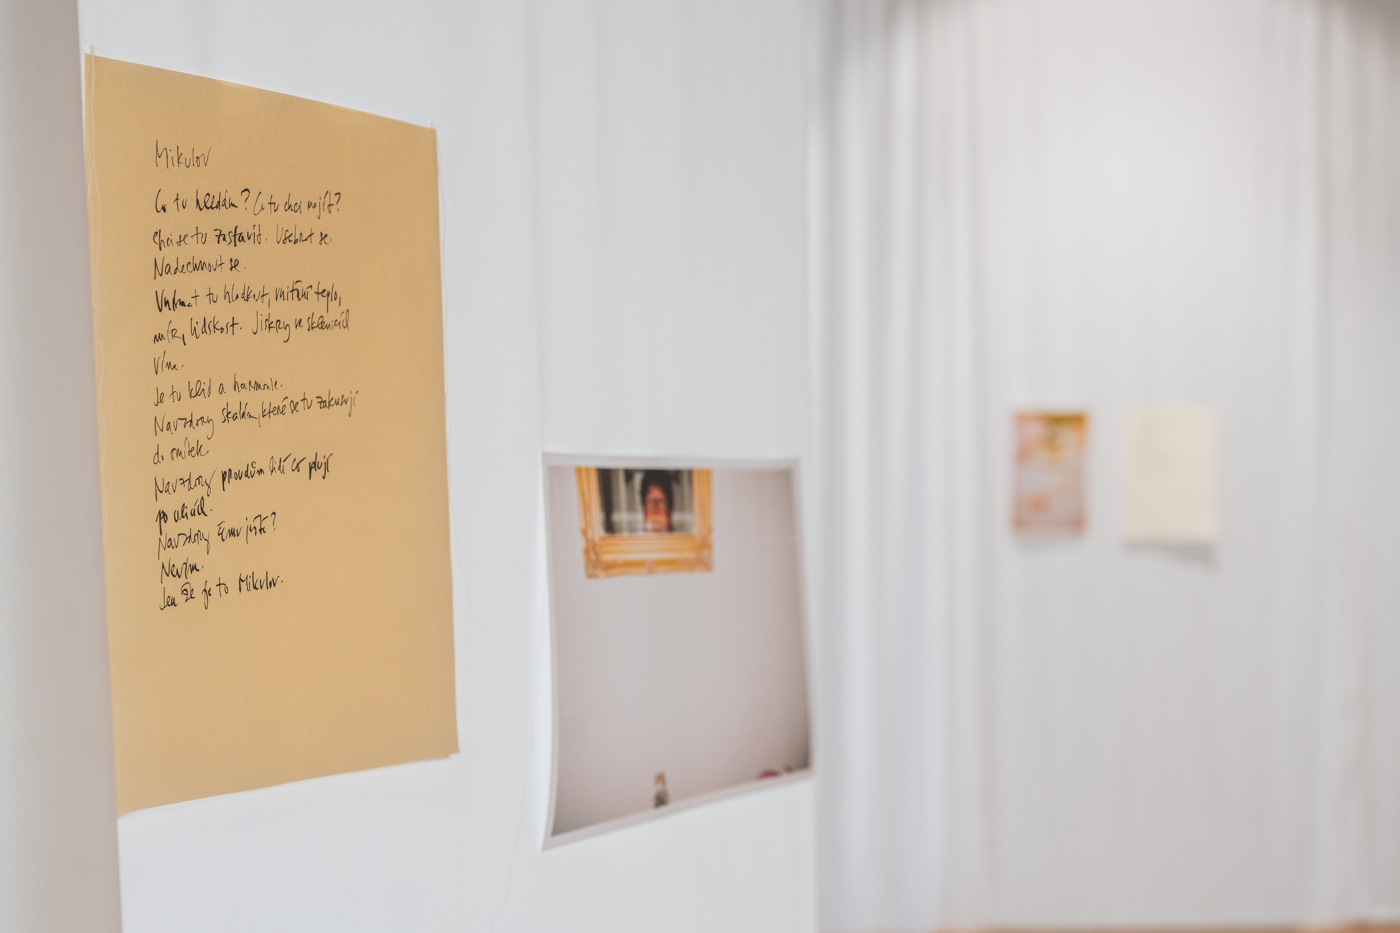 Mikulov
Co tu hledám? Co tu chci najít?
Chci se tu zastavit. Usebrat se.
Nadechnout se.
Vnímat tu hladkost, vnitřní teplo,
mír, lidskost. Jiskry ve sklenicích
vína.
Je tu klid a harmonie.
Navzdory skalám, které se tu zakusují
do omítek.
Navzdory proudům lidí co plují
po ulicích.
Navzdory čemu ještě?
Nevím.
Jen že je to Mikulov.